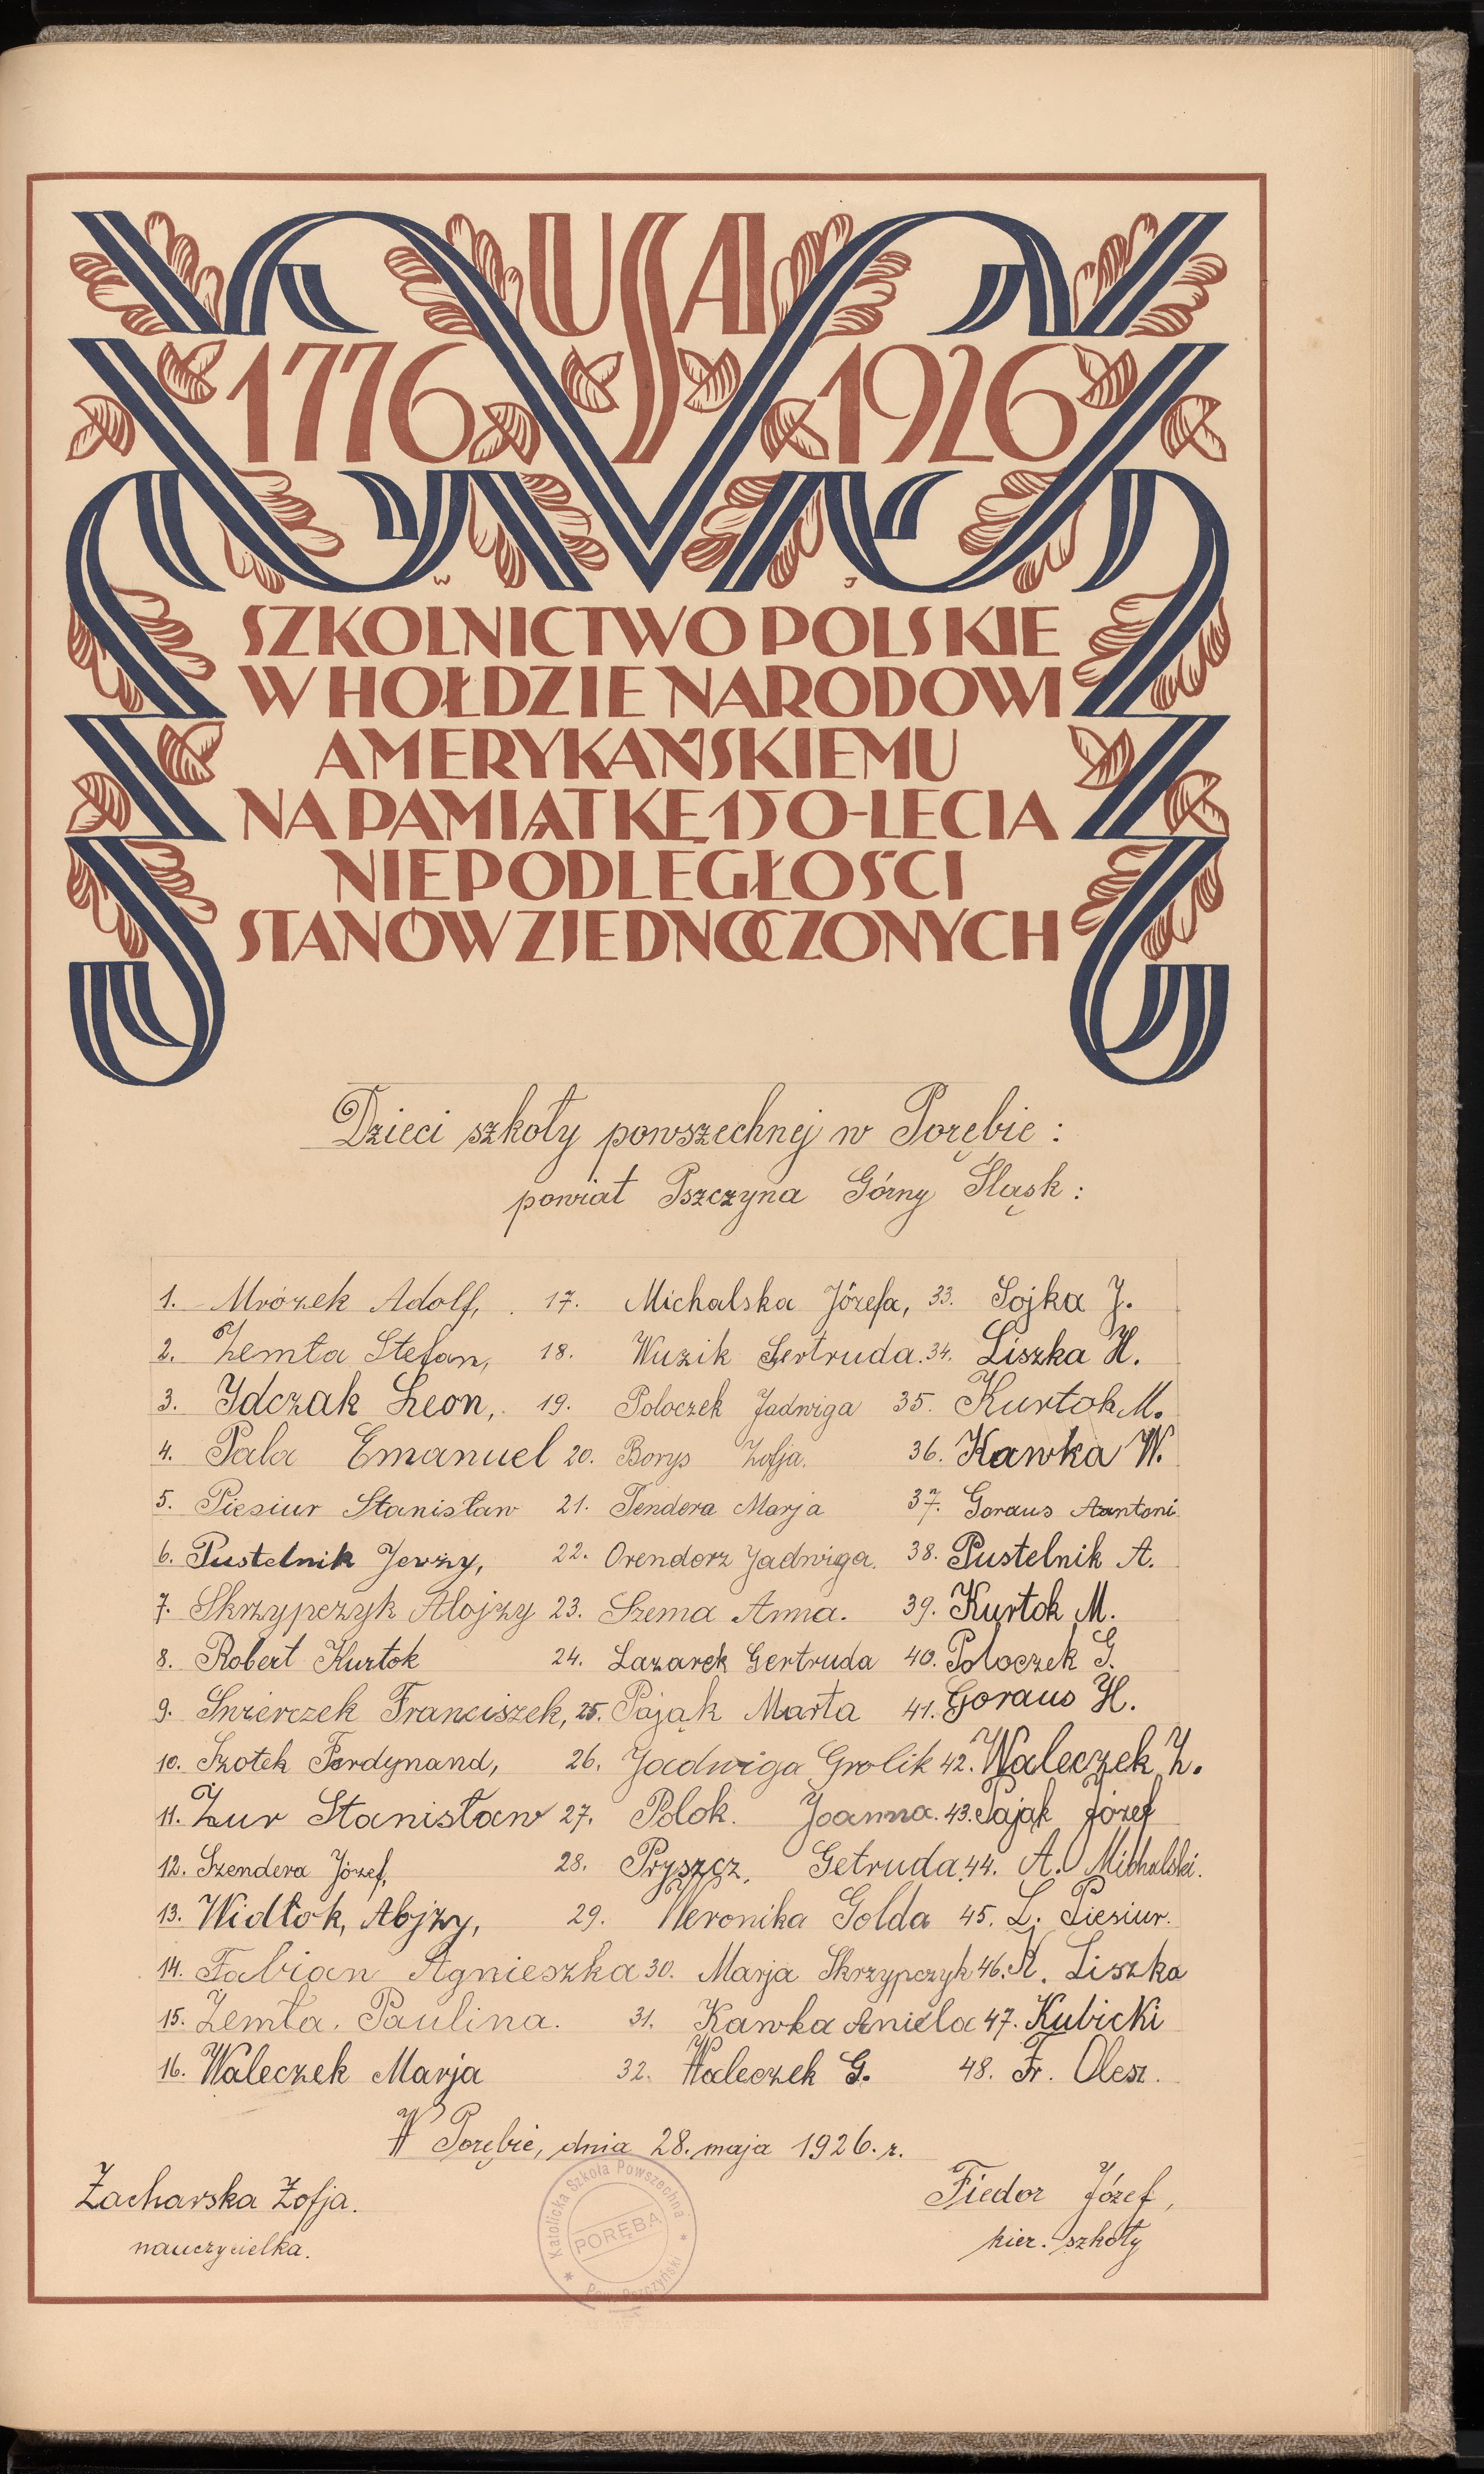 USA
1776 1926
W J
SZKOLNICTWO POLSKIE
W HOŁDZIE NARODOWI
AMERYKAŃSKIEMU
NA PAMIĄTKĘ 150-LECIA
NIEPODLEGŁOŚCI
STANÓW ZJEDNOCZONYCH
Dzieci szkoły powszechnej w Porębie :
powiat Pszczyna Górny Śląsk :
1. Mrózek Adolf, 17. Michalska Józefa, 33. Sojka J.
2. Żemła Stefan, 18. Wuzik Gertruda. 34. Liszka H.
3. Idczak Leon, 19. Poloczek Jadwiga 35. Kurtok M.
4. Pala Emanuel 20. Borys Zofja. 36. Kawka W.
5. Piesiur Stanisław 21. Tendera Marja 37. Goraus Aantoni
6. Pustelnik Jerzy, 22. Orendorz Jadwiga. 38. Pustelnik A.
7. Skrzypczyk Alojzy 23. Szema Anna. 39. Kurtok M.
8. Robert Kurtok 24. Lazarek Gertruda 40. Poloczek G.
9. Świerczek Franciszek, 25. Pająk Marta 41. Goraus H.
10. Szotek Ferdynand, 26. Jadwiga Grolik 42. Waleczek Z.
11. Żur Stanisław 27. Polok. Joanna. 43. Pająk Józef
12. Szendera Józef, 28. Pryszcz, Getruda. 44. A. Michalski.
13. Widłok, Alojzy, 29. Weronika Golda 45. L. Piesiur.
14. Fabian Agnieszka 30. Marja Skrzypczyk 46. A. Liszka
15. Żemła. Paulina. 31. Kawka Aniela 47. Kubicki
16. Waleczek Marja 32. Waleczek G. 48. Fr. Olesz.
W Porębie, dnia 28. maja 1926. r.
Zacharska Zofja. Fiedor Józef,
nauczycielka. kier. szkoły
Katolicka Szkoła Powszechna
PORĘBA
Pow. Pszczyński